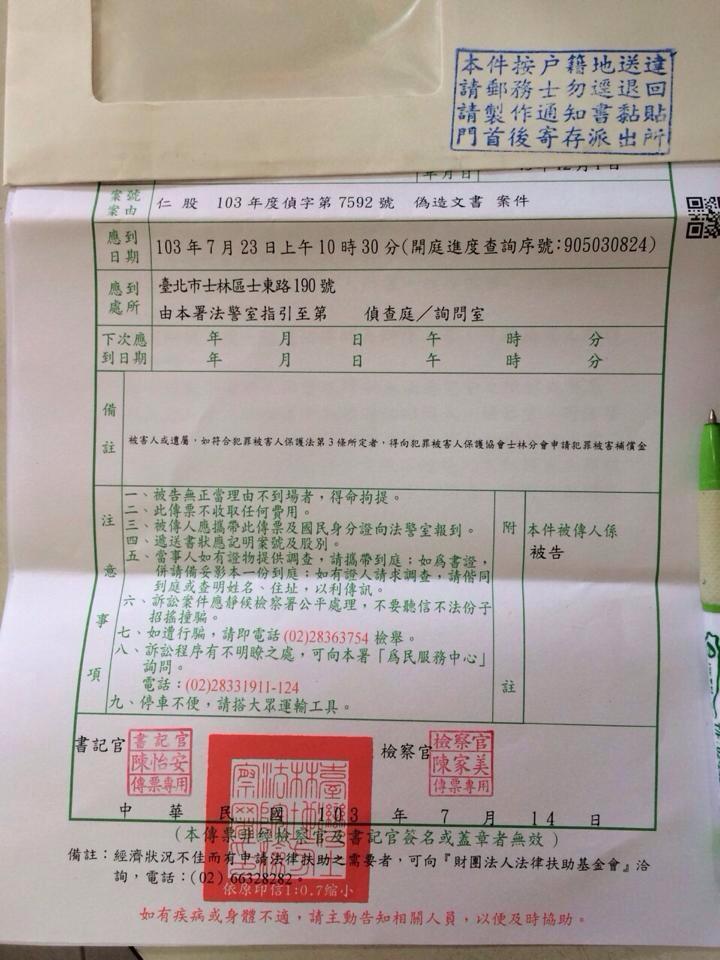 本件按戶籍地送達
請郵務士勿逕退回
請製作通知書黏貼
門首後寄存派出所
年月日
案號
案由
仁股 103年度偵字第7592號 偽造文書 案件
應到
日期
103年7月23日上午10時30分(開庭進度查詢序號:905030824)
應到
處所
臺北市士林區士東路190號
由本署法警室指引至第 偵查庭／詢問室
下次應
到日期
年 月 日 午 時 分
年 月 日 午 時 分
備註
被害人或遺屬,如符合犯罪被害人保護法第3條所定者,得向犯罪被害人保護協會士林分會申請犯罪被害補償金
注意事項
一、被告無正當理由不到場者,得命拘提。
二、此傳票不收取任何費用。
三、被傳人應攜帶此傳票及國民身分證向法警室報到。
四、遞送書狀應記明案號及股別。
五、當事人如有證物提供調查,請攜帶到庭;如為書證,
併請備妥影本一份到庭;如有證人請求調查,請偕同
到庭或查明姓名、住址,以利傳訊。
六、訴訟案件應靜候檢察署公平處理,不要聽信不法份子
招搖撞騙。
七、如遭行騙,請即電話(02)28363754檢舉。
八、訴訟程序有不明瞭之處,可向本署「為民服務中心」
詢問。
電話:(02)28331911-124
九、停車不便,請搭大眾運輸工具。
附註
本件被傳人係
被告
書記官
書記官
陳怡安
傳票專用
檢察官
檢察官
陳家美
傳票專用
中華民國 103 年 7 月 14 日
(本傳票非經檢察官及書記官簽名或蓋章者無效)
依原印信1:0.7縮小
備註:經濟狀況不佳而有申請法律扶助之需要者,可向『財團法人法律扶助基金會』洽
詢,電話:(02)66328282。
如有疾病或身體不適,請主動告知相關人員,以便及時協助。